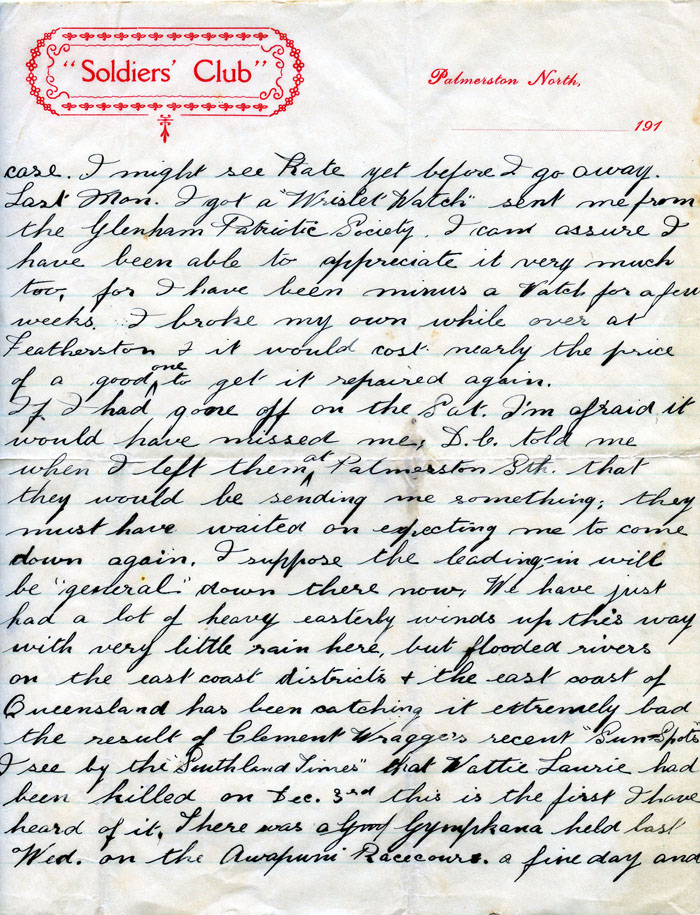 "Soldiers' Club"
Palmerston North,
191
case. I might see Kate yet before I go away.
Last Mon. I got a "Wrislet Watch" sent me from
the Glenham Patriotic Society. I can assure I
have been able to appreciate it very much
too, for I have been minus a Watch for a few
weeks. I broke my own while over at
Featherston & it would cost nearly the price
of a good one to get it repaired again.
If I had gone off on the Sat. I'm afraid it
would have missed me, D.C. told me
when I left them at Palmerston Sth. that
they would be sending me something; they
must have waited on expecting me to come
down again. I suppose the leading-in will
be "general" down there now, We have just
had a lot of heavy easterly winds up this way
with very little rain here, but flooded rivers
on the east coast districts & the east coast of
Queensland has been catching it extremely bad
the result of Clement Wragge's recent "Sun=Spots"
I see by the "Southland Times" that Wattie Laurie had
been killed on Dec. 3rd this is the first I have
heard of it. There was a Gymphana held last
Wed. on the Awapuni Racecours. a fine day and